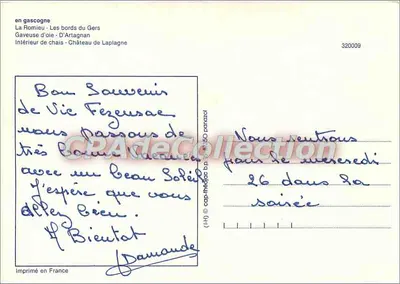 en gascogne
La Romieu - Les bords du Gers
Gaveuse d'oie - D'Artagnan
Intérieur de chais - Château de Laplagne
320009
Bon Souvenir
de Vic Fezensac
nous passons de
très bonnes Vacances
avec un beau Soleil
J'espère que vous
allez bien.
A Bientot
Damande
Nous rentrons
pour le mercredi
26 dans la
soirée
CPACollection
Imprimé en France